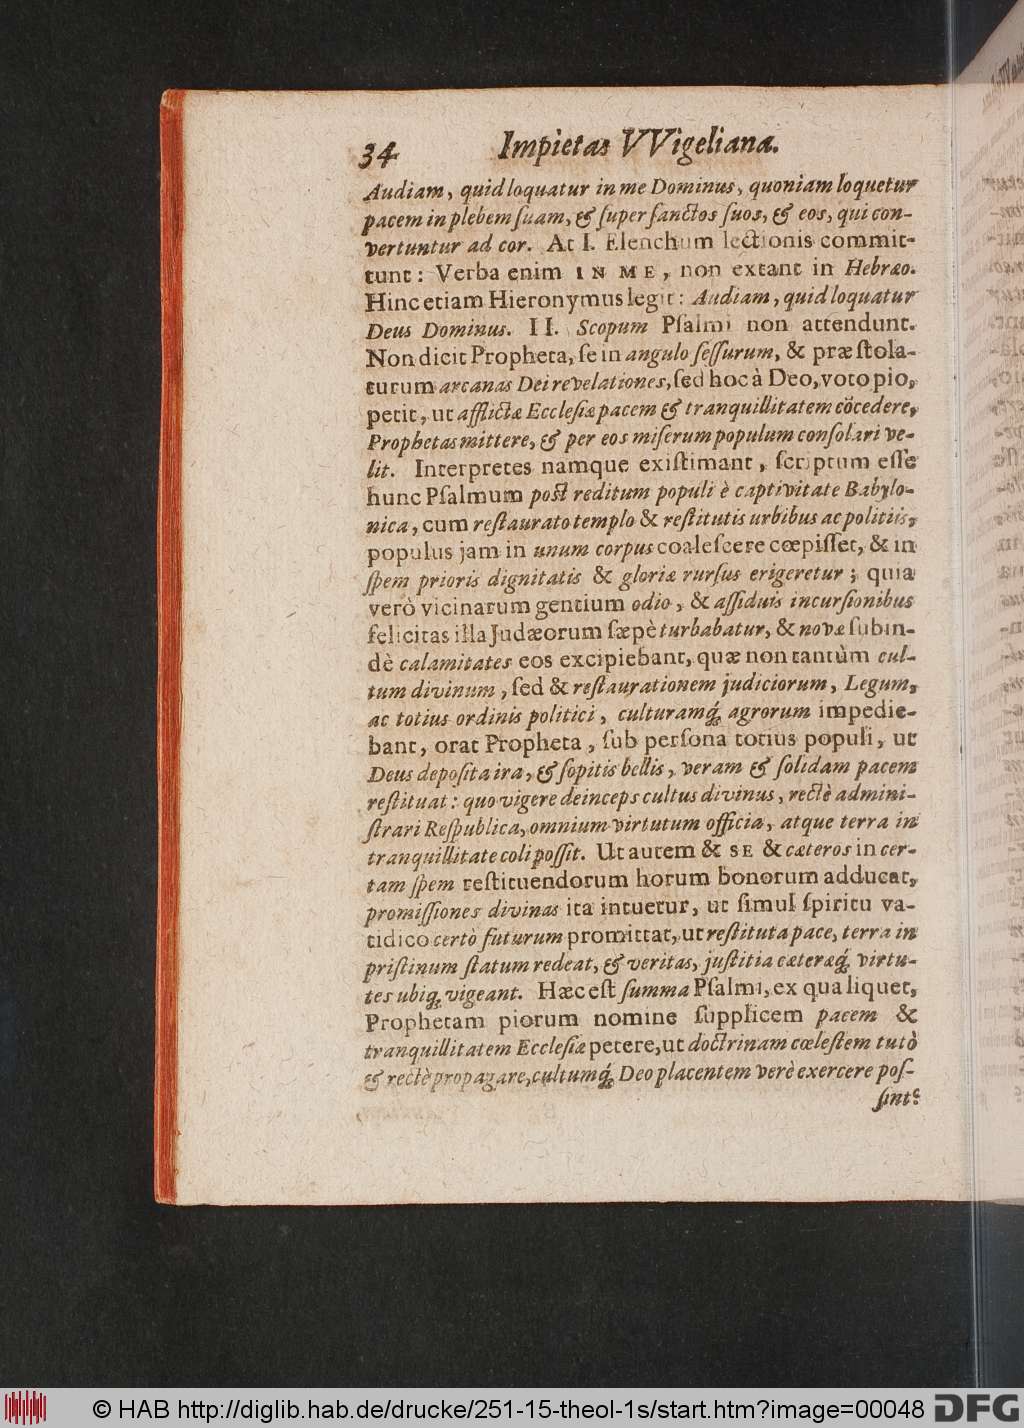 34 Impietas VVigeliana.
Audiam, quid loquatur in me Dominus, quoniam loquetur
pacem in plebem ſuam, & ſuper ſanctos ſuos, & eos, qui con-
vertuntur ad cor. At I. Elenchum lectionis commit-
tunt: Verba enim IN ME, non extant in Hebræo.
Hinc etiam Hieronymus legit: Audiam, quid loquatur
Deus Dominus. II. Scopum Pſalmi non attendunt.
Non dicit Propheta, ſe in angulo ſeſſurum, & præſtola-
turum arcanas Dei revelationes, ſed hoc à Deo, voto pio,
petit, ut afflictæ Eccleſiæ pacem & tranquillitatem cōcedere,
Prophetas mittere, & per eos miſerum populum conſolari ve-
lit. Interpretes namque exiſtimant, ſcriptum eſſe
hunc Pſalmum poſt reditum populi è captivitate Babylo-
nica, cum reſtaurato templo & reſtitutis urbibus ac politiis,
populus jam in unum corpus coaleſcere cœpiſſet, & in
ſpem prioris dignitatis & gloriæ rurſus erigeretur; quia
verò vicinarum gentium odio, & aſſiduis incurſionibus
felicitas illa Judæorum ſæpè turbabatur, & novæ ſubin-
dè calamitates eos excipiebant, quæ non tantùm cul-
tum divinum, ſed & reſtaurationem judiciorum, Legum,
ac totius ordinis politici, culturamq́; agrorum impedie-
bant, orat Propheta, ſub perſona totius populi, ut
Deus depoſita ira, & ſopitis bellis, veram & ſolidam pacem
reſtituat: quo vigere deinceps cultus divinus, rectè admini-
ſtrari Reſpublica, omnium virtutum officia, atque terra in
tranquillitate coli poſſit. Ut autem & SE & cæteros in cer-
tam ſpem reſtituendorum horum bonorum adducat,
promiſſiones divinas ita intuetur, ut ſimul ſpiritu va-
tidico certò futurum promittat, ut reſtituta pace, terra in
priſtinum ſtatum redeat, & veritas, juſtitia cæteræq́; virtu-
tes ubiq; vigeant. Hæc eſt ſumma Pſalmi, ex qua liquet,
Prophetam piorum nomine ſupplicem pacem &
tranquillitatem Eccleſiæ petere, ut doctrinam cœleſtem tutò
& rectè propagare, cultumq́; Deo placentem verè exercere poſ-
ſint:
© HAB http://diglib.hab.de/drucke/251-15-theol-1s/start.htm?image=00048
DFG